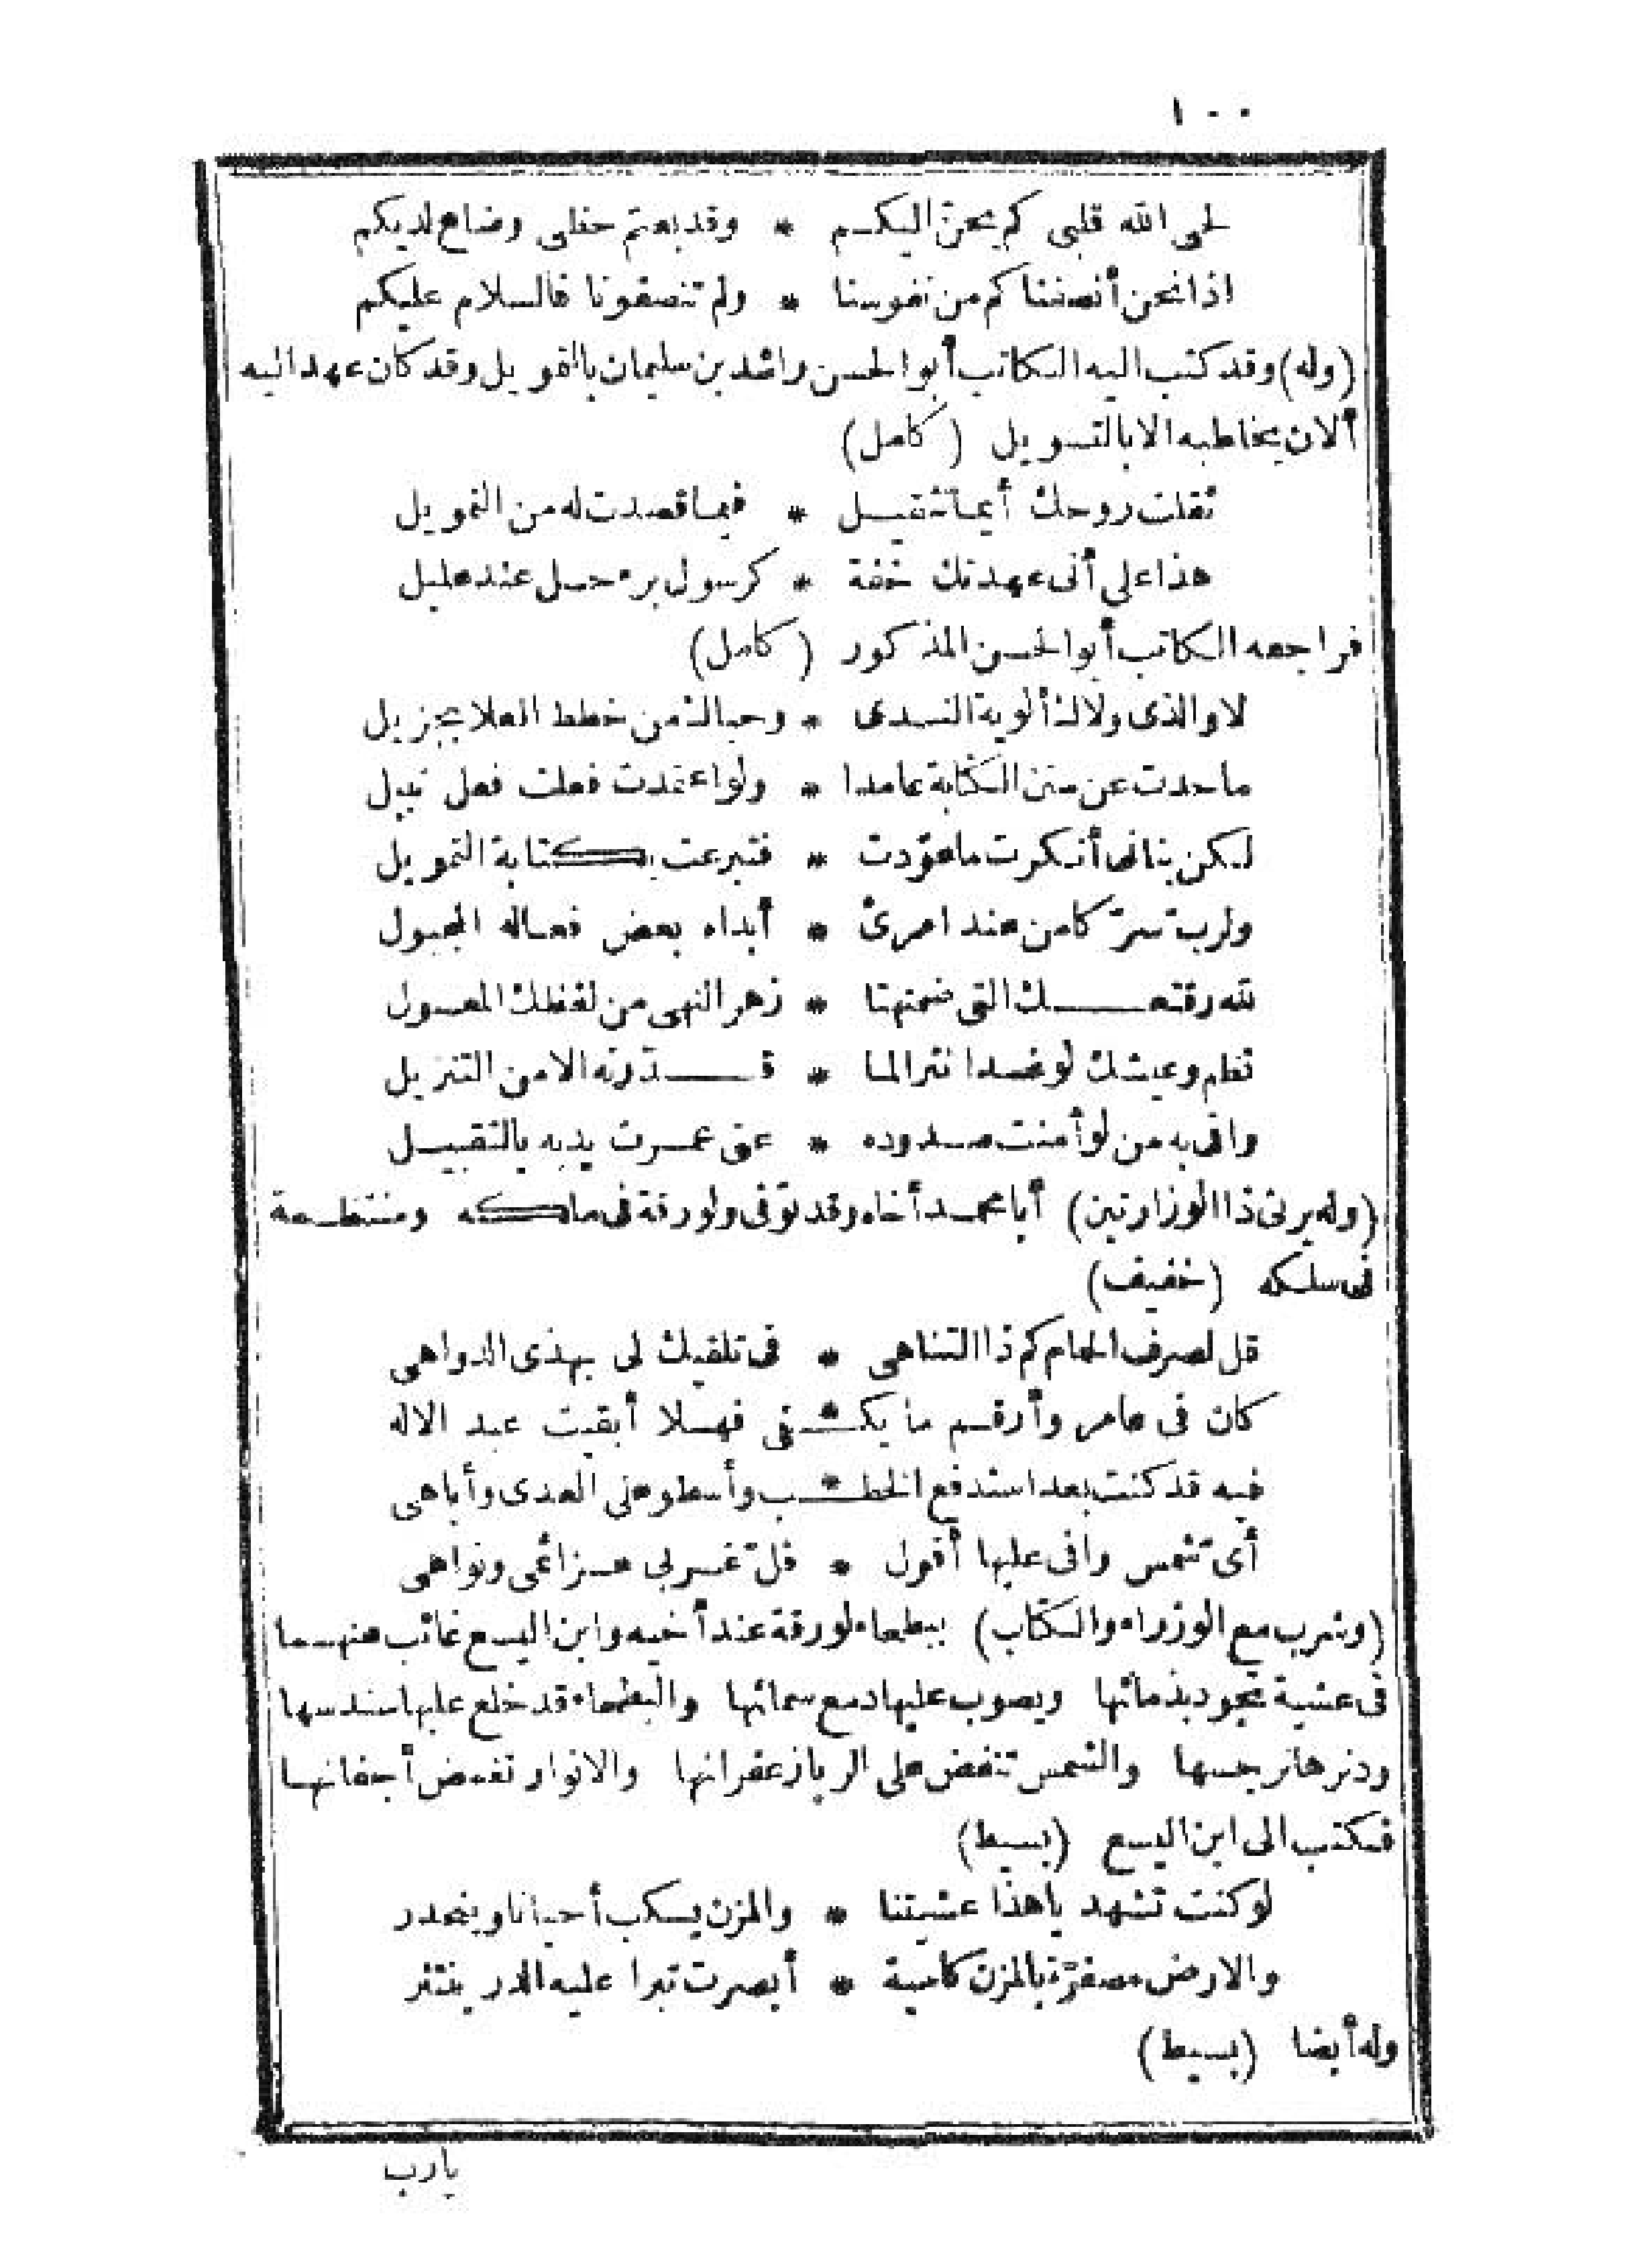 ١٠٠
لحى الله قلبى كم يحنّ اليكم * وقد بعتم حظى وضاع لديكم
اذا نحن أنصفناكم من نفوسنا * ولم تنصفونا فالسلام عليكم
(وله) وقد كتب اليه الكاتب أبو الحسن راشد بن سليمان بالتمويل وقد كان عهد اليه
ألان يخاطبه الا بالتسويل (كامل)
ثقلت روحك أيما تثقيل * فيما قصدت له من التمويل
هذا على أنى عهدتك خفة * كرسول برء حل عند عليل
فراجعه الكاتب أبو الحسن المذكور (كامل)
لا والذى ولاك ألوية الندى * وحباك من خطط العلا بجزيل
ما حدت عن سنن الكتابة عامدا * ولو اعتمدت فعلت فعل نبيل
لكن بنانى أنكرت ما عوّدت * فتبرعت بكتابة التمويل
ولرب سرّ كامن عند امرئ * أبداه بعض فعاله المجبول
لله رقعتك التى ضمنتها * زهر النهى من لفظك المعسول
نظم وعيشك لو غدا نثرا لما * قدّرته الا من التنزيل
وافى به من لو أمنت صدوده * عنى عمرت يديه بالتقبيل
(وله يرثى ذا الوزارتين) أبا محمد أخاه وقد توفى ولورقة فى ملكه ومنتظمة
فى سلكه (خفيف)
قل لصرف الحمام كم ذا التناهى * فى تلقيك لى بهذى الدواهى
كان فى عامر وأرقم ما يكـ*ـفى فهلا أبقيت عبد الاله
فبه قد كنت بعد استدفع الخطـ*ـب وأسطو على العدى وأباهى
أى شمس وافى عليها أفول * فلّ غربى عزائمى ونواهى
(وشرب مع الوزراء والكتاب) ببطحاء لورقة عند أخيه وابن اليسع غائب عنهما
فى عشية تجود بذمائها ويصوب عليها دمع سمائها والبطحاء قد خلع عليها سندسها
ودنرها نرجسها والشمس تنفض على الربا زعفرانها والانوار تغمض أجفانها
فكتب الى ابن اليسع (بسيط)
لو كنت تشهد يا هذا عشيتنا * والمزن يسكب أحيانا وينحدر
والارض مصفرّة بالمزن كاسية * أبصرت تبرا عليه الدر ينتثر
وله أيضا (بسيط)
يارب